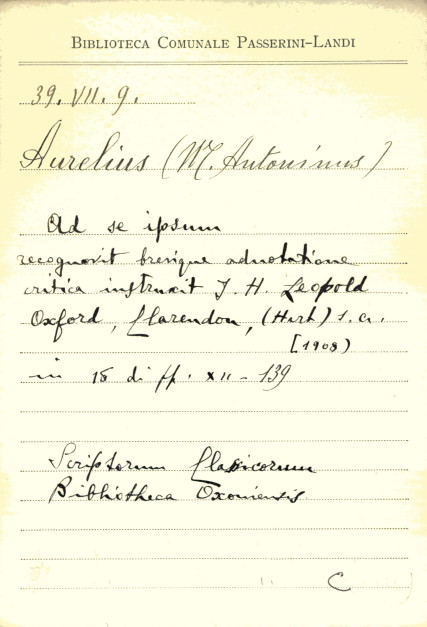 BIBLIOTECA COMUNALE PASSERINI-LANDI
39. VII. 9.
Aurelius (M. Antoninus)
Ad se ipsum
recognovit brevique adnotatione
critica instruxit J. H. Leopold
Oxford, Clarendon, (Hart) s. a.
[1908)
in 18 di pp. XII - 139
Scriptorum Classicorum
Bibliotheca Oxoniensis
C